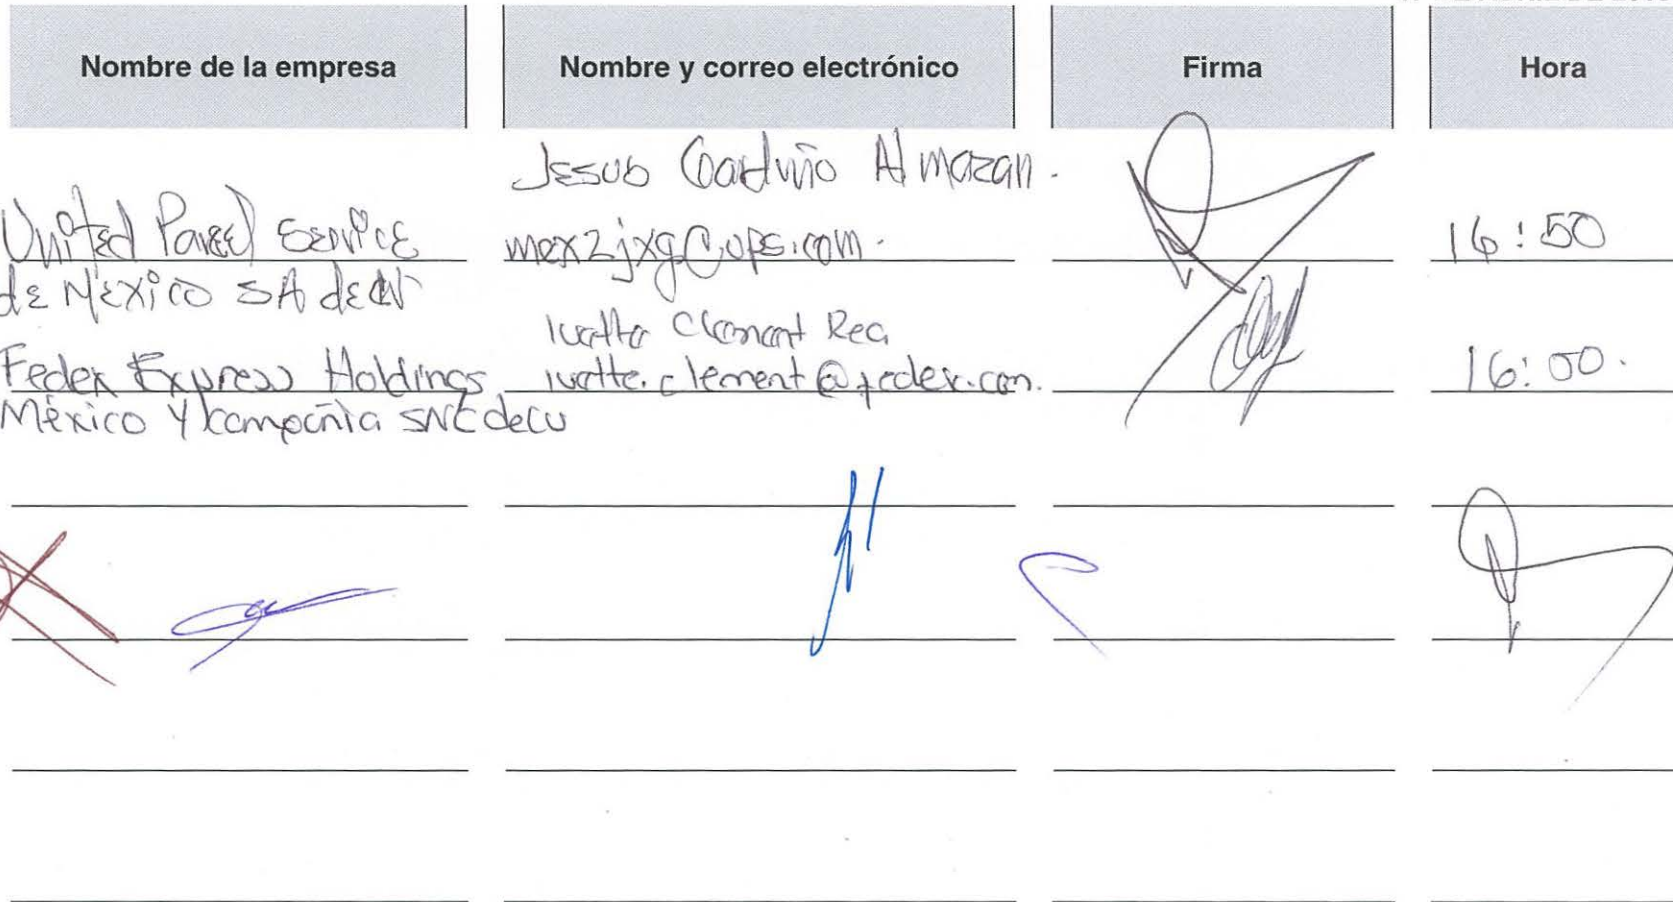 Nombre de la empresa
Nombre y correo electrónico
Firma
Hora
United Parcel Service
de México SA de CV
Jesus Garduño Almazan.
mex2jxg@ups.com.
16:50
Fedex Express Holdings
México y Compañia SNC de CV
Ivette Clement Rea
ivette.clement@fedex.com.
16:00.